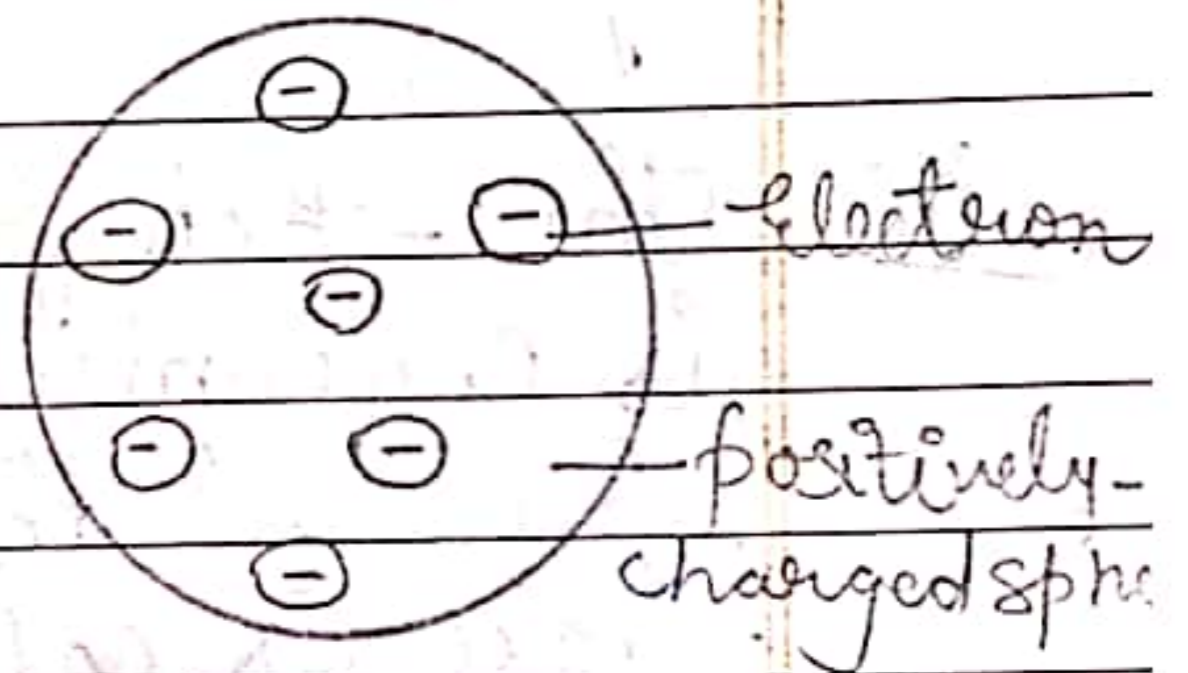 -
-
-
Electron
-
-
-
positively-
charged sphe
-